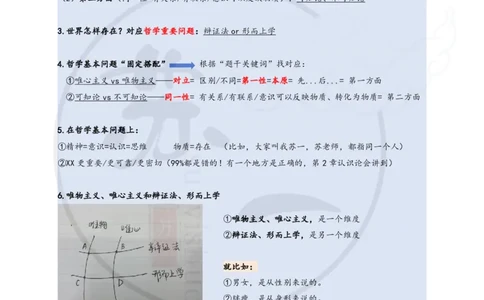 3.世界怎样存在？对应哲学重要问题：辩证法 or 形而上学
4.哲学基本问题“固定搭配” 根据“题干关键词”找对应：
①唯心主义 vs 唯物主义——对立= 区别/不同=第一性=本原= 先...后...= 第一方面
②可知论 vs 不可知论——同一性= 有关系/有联系/意识可以反映物质、转化为物质= 第二方面
5.在哲学基本问题上：
①精神=意识=认识=思维 物质=存在 （比如，大家叫我苏一，苏老师，都指同一个人）
②XX 更重要/更可靠/更密切（99%都是错的！有一个地方是正确的，第 2 章认识论会讲到）
6.唯物主义、唯心主义和辩证法、形而上学
唯物 唯心
A B 辩证法
C D 形而上学
①唯物主义、唯心主义，是一个维度
②辩证法、形而上学，是另一个维度
就比如：
①男女，是从性别来说的。